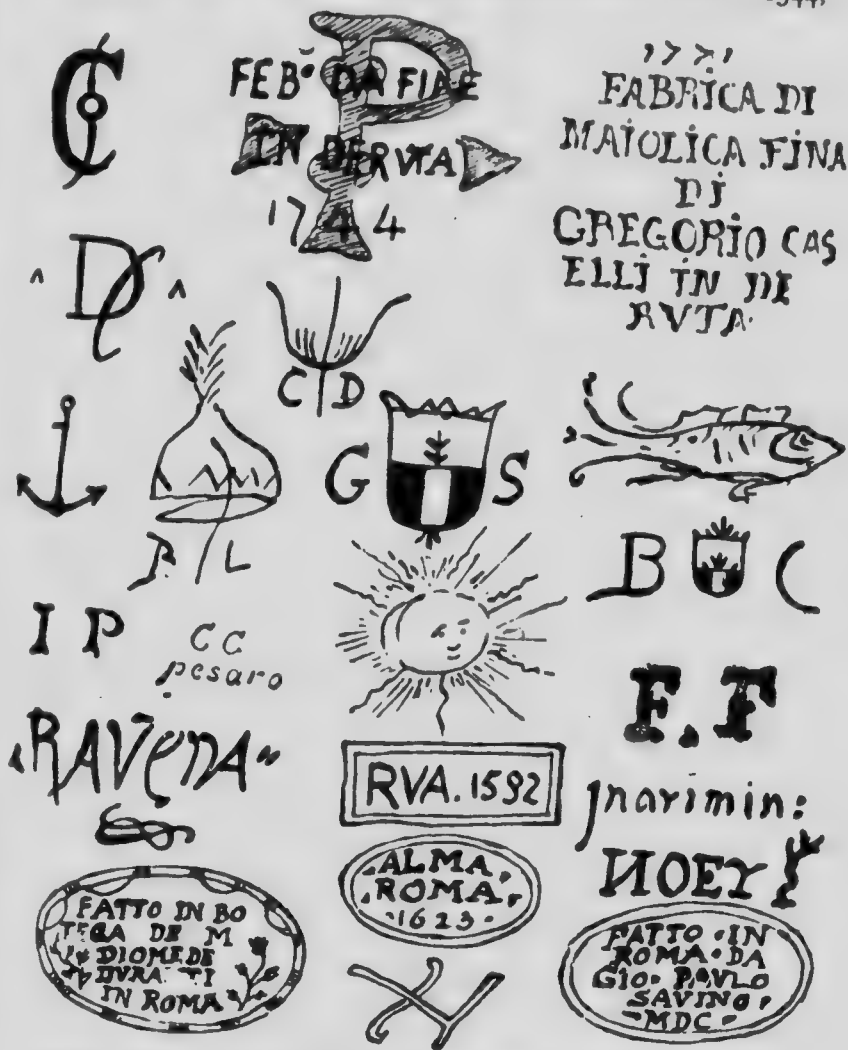 FEBº DA FIAE
IN DERVTA
1744
1771
FABRICA DI
MAIOLICA FINA
DI
GREGORIO CAS
ELLI IN DE
RVTA
C D
G S
P L
B C
I P
C C
pesaro
F. T
RAVEnA
RVA. 1592
Jnarimin:
ALMA
ROMA
1623
FATTO IN BO
TEGA DE M
DIOMEDE
DVRA TI
IN ROMA
FATTO · IN
ROMA · DA
GIO · PAVLO
SAVINO
MDC